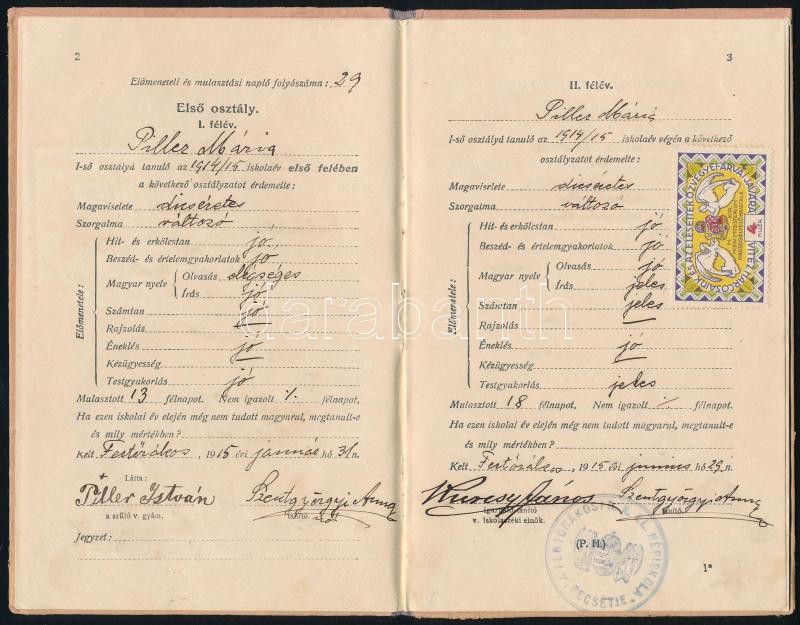 2
Előmeneteli és mulasztási napló folyószáma: 29
Első osztály.
I. félév.
Piller Mária
I-ső osztályú tanuló az 1914/15 iskolaév első felében
a következő osztályzatot érdemelte:
Magaviselete dicséretes
Szorgalma változó
Előmenetele:
Hit- és erkölcstan jó
Beszéd- és értelemgyakorlatok jó
Magyar nyelv Olvasás elégséges
Írás jó
Számtan jó
Rajzolás —
Éneklés jó
Kézügyesség —
Testgyakorlás jó
Mulasztott 13 félnapot. Nem igazolt ⁒ félnapot.
Ha ezen iskolai év elején még nem tudott magyarul, megtanult-e
és mily mértékben?
Kelt Fertőrákos, 1915 évi január hó 31n.
Látta:
Piller István Szentgyörgyi Anna
a szülő v. gyám. tanító nő
Jegyzet:
3
II. félév.
Piller Mária
I-ső osztályú tanuló az 1914/15 iskolaév végén a következő
osztályzatot érdemelte:
Magaviselete dicséretes
Szorgalma változó
Előmenetele:
Hit- és erkölcstan jó
Beszéd- és értelemgyakorlatok jó
Magyar nyelv Olvasás jó
Írás jeles
Számtan jeles
Rajzolás —
Éneklés jó
Kézügyesség —
Testgyakorlás jeles
Mulasztott 18 félnapot. Nem igazolt ⁒ félnapot.
Ha ezen iskolai év elején még nem tudott magyarul, megtanult-e
és mily mértékben?
Kelt Fertőrákos 1915 évi junius hó 29.n.
János Szentgyörgyi Anna
igazgató tanító tanító.
v. iskolaszéki elnök.
(P. H.)
1*
NÉPISKOLA PECSÉTJE
VITÉZ HARCOSAINK ÉS AZ ELESETTEK ÖZVEGYEI ÁRVÁI JAVÁRA
4 FILLÉR
darabanth